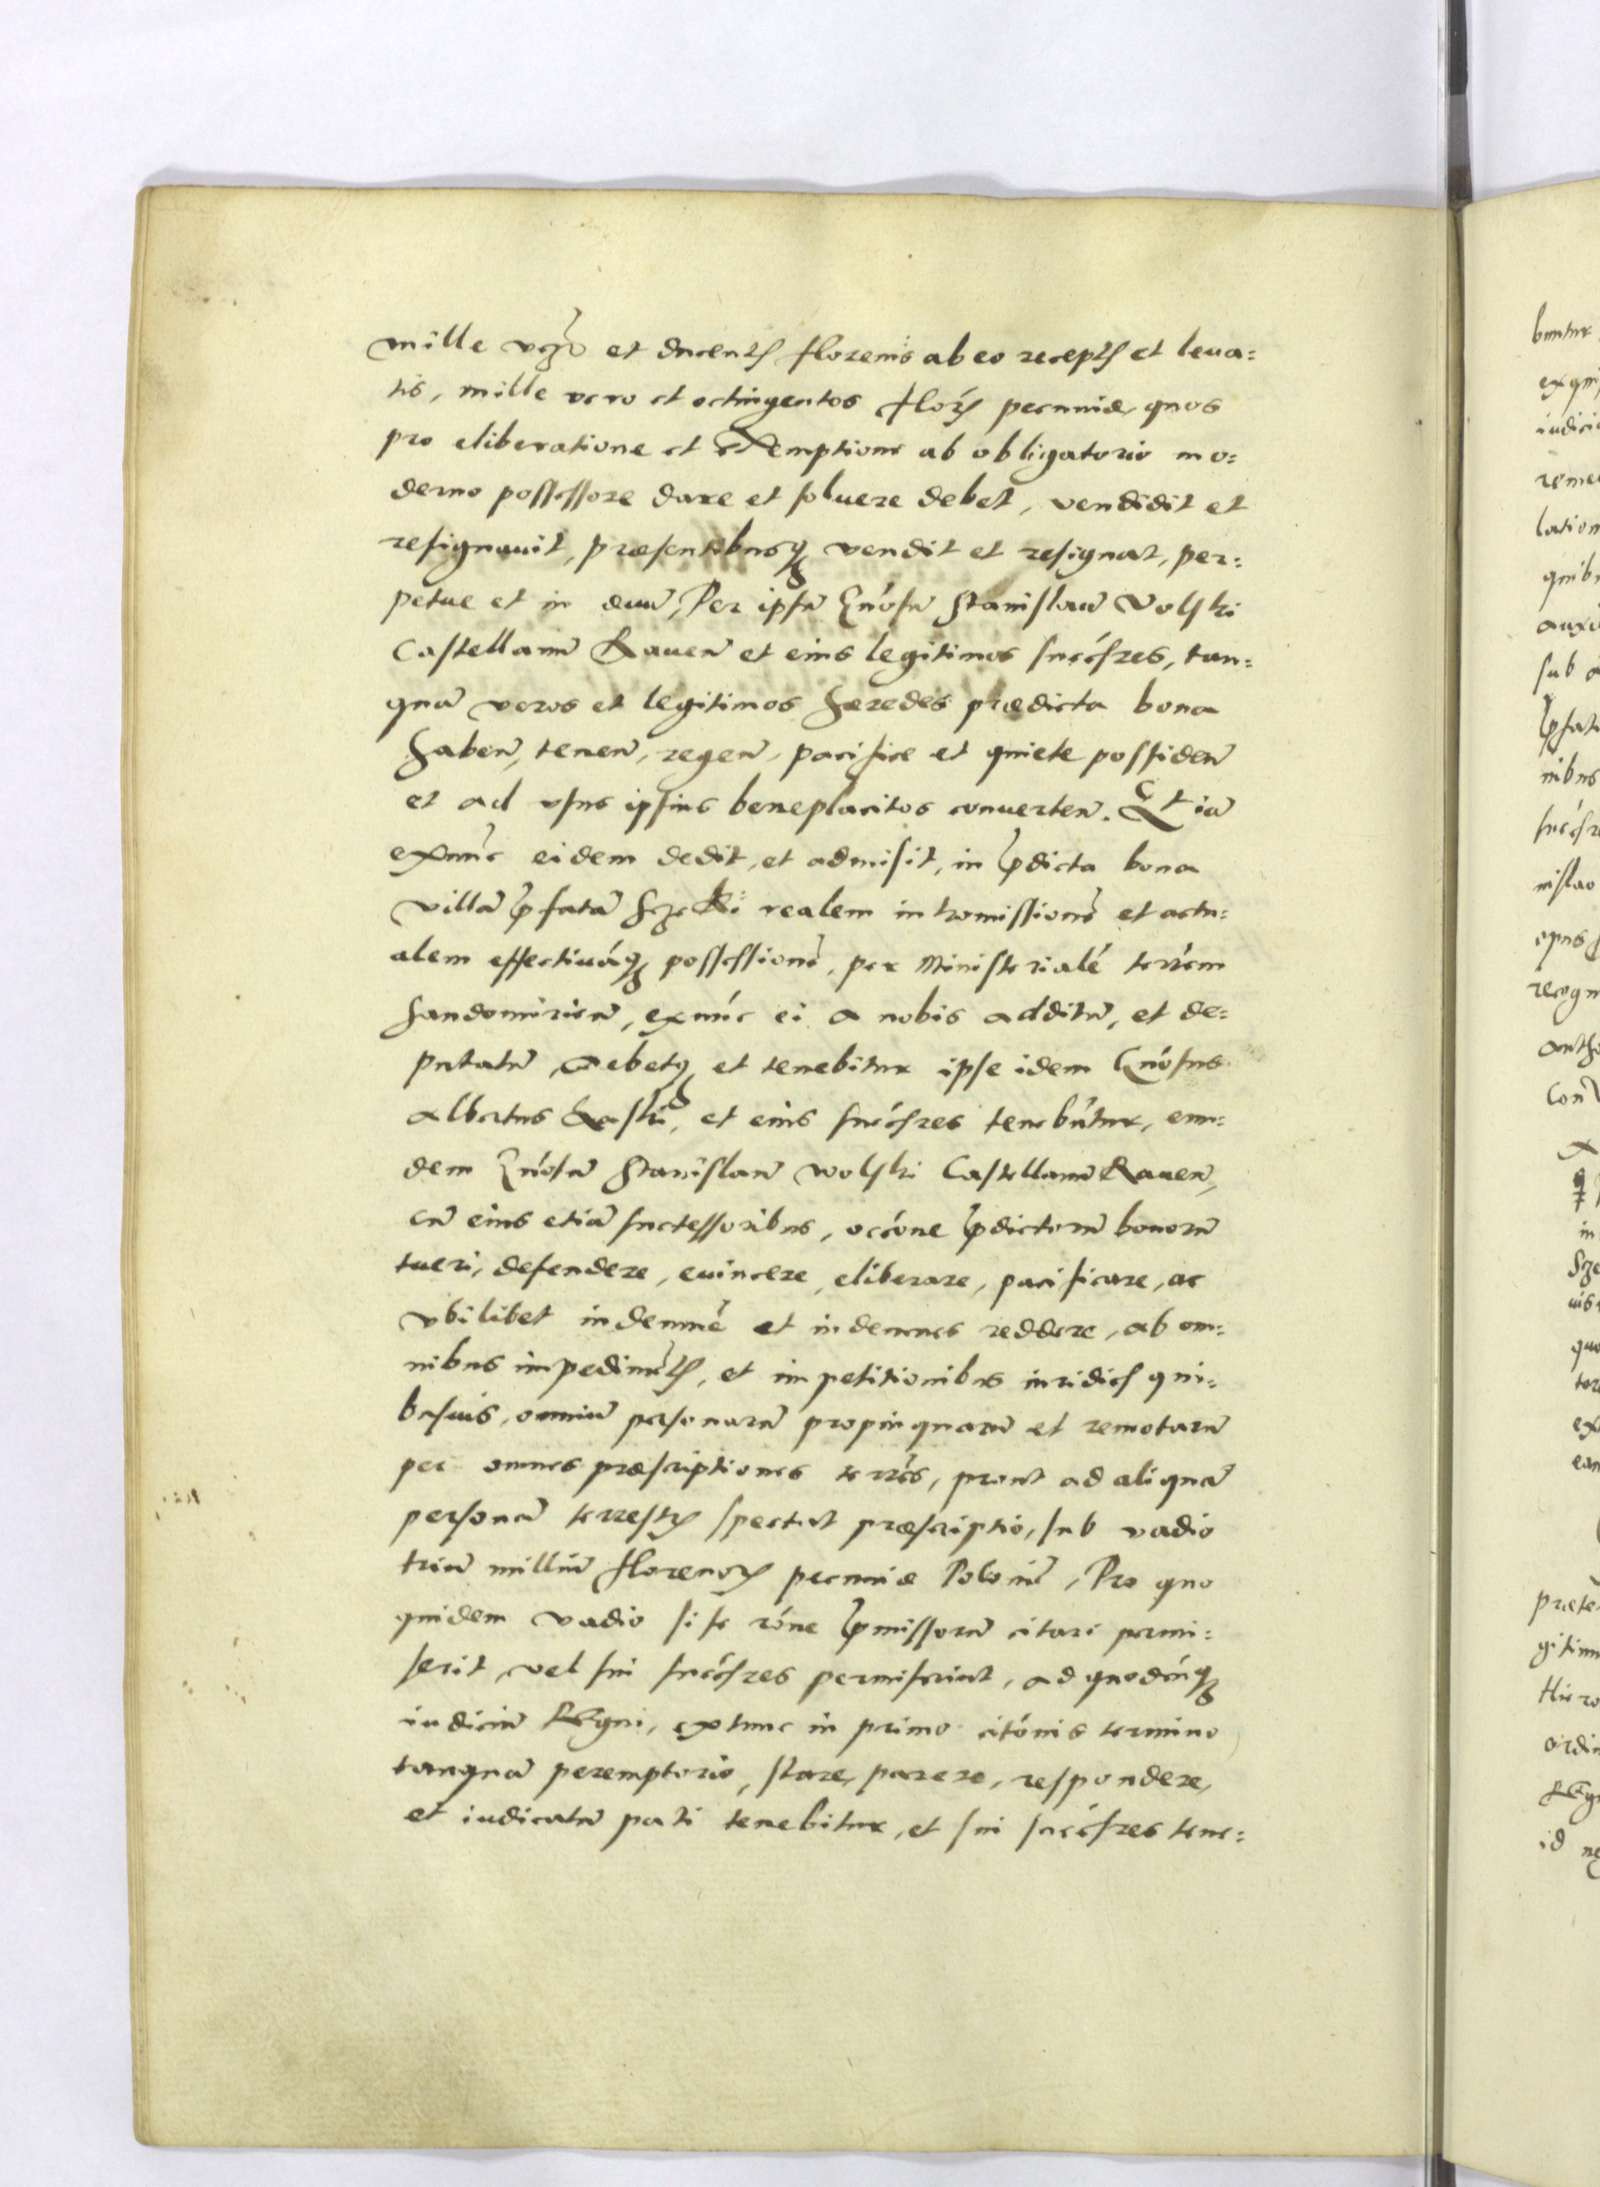 mille et ducentꝭ florenis ab eo receptꝭ et leua=
tis, mille vero et octingentos florꝭ pecuniæ, quos
pro eliberatione et exemptione ab obligatorio mo=
derno possessore dare et soluere debet, vendidit et
resignauit, præsentibusqꝫ vendit et resignat, per=
petue et in æuū, Per ipsū Gn̄osū Stanislaū Volski
Castellanū Rauen̄ et eius legitimos succ̄sres, tan=
quā veros et legitimos hæredes prædicta bona
haben̄, tenen̄, regen̄, pacifice et quiete possiden̄
et ad vsus ipsius beneplacitos conuerten̄. Et iā
exnūc eidem dedit, et admisit, in p̄dicta bona
villā p̄fatā realem intromissionē et actu=
alem effectiuāqꝫ possessionē, per Ministerialē terrēm
Sandomirien̄, exnūc ei a nobis additū, et de=
putatū, Debetqꝫ et tenebitur ipse idem Gn̄osus
Albertus Laski, et eius succ̄sres tenebūtur, eun=
dem Gn̄osū Stanislaū Wolski Castellanū Rauen̄,
cū eius etiā successoribus, occōne p̄dictorū bonorū
tueri, defendere, euincere, eliberare, pacificare, ac
vbilibet indemnē et indemnes reddere, ab om=
nibus impedimētꝭ, et impetitionibus iuridicꝭ qui=
busuis, omniū personarū propinquarū et remotarū
per omnes præscriptiones terrēs, prout ad aliquā
personā terrestrꝭ spectat præscriptio, sub vadio
triū milliū florenoꝝ pecuniæ Polonicē, Pro quo
quidem vadio si se rōne p̄missorū citari permi=
serit, vel sui succ̄sres permiserint, ad quodcūqꝫ
iudiciū Regni, extunc in primo citōnis termino
tanquā peremptorio, stare, parere, respondere,
et iudicatū pati tenebitur, et sui succ̄sres tene=